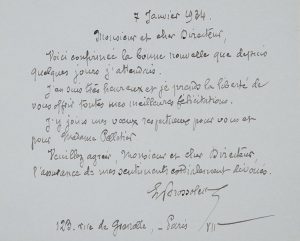 7 Janvier 1934.
Monsieur et cher Directeur,
Voici confirmée la bonne nouvelle que depuis
quelques jours j'attendais.
J'en suis très heureux et je prends la liberté de
vous offrir toutes mes meilleures félicitations.
J'y joins mes vœux respectueux pour vous et
pour Madame Pelletier
Veuillez agréer, Monsieur et cher Directeur
l'assurance de mes sentiments cordialement dévoués.
Brossolette
123. rue de Grenelle, - Paris VII